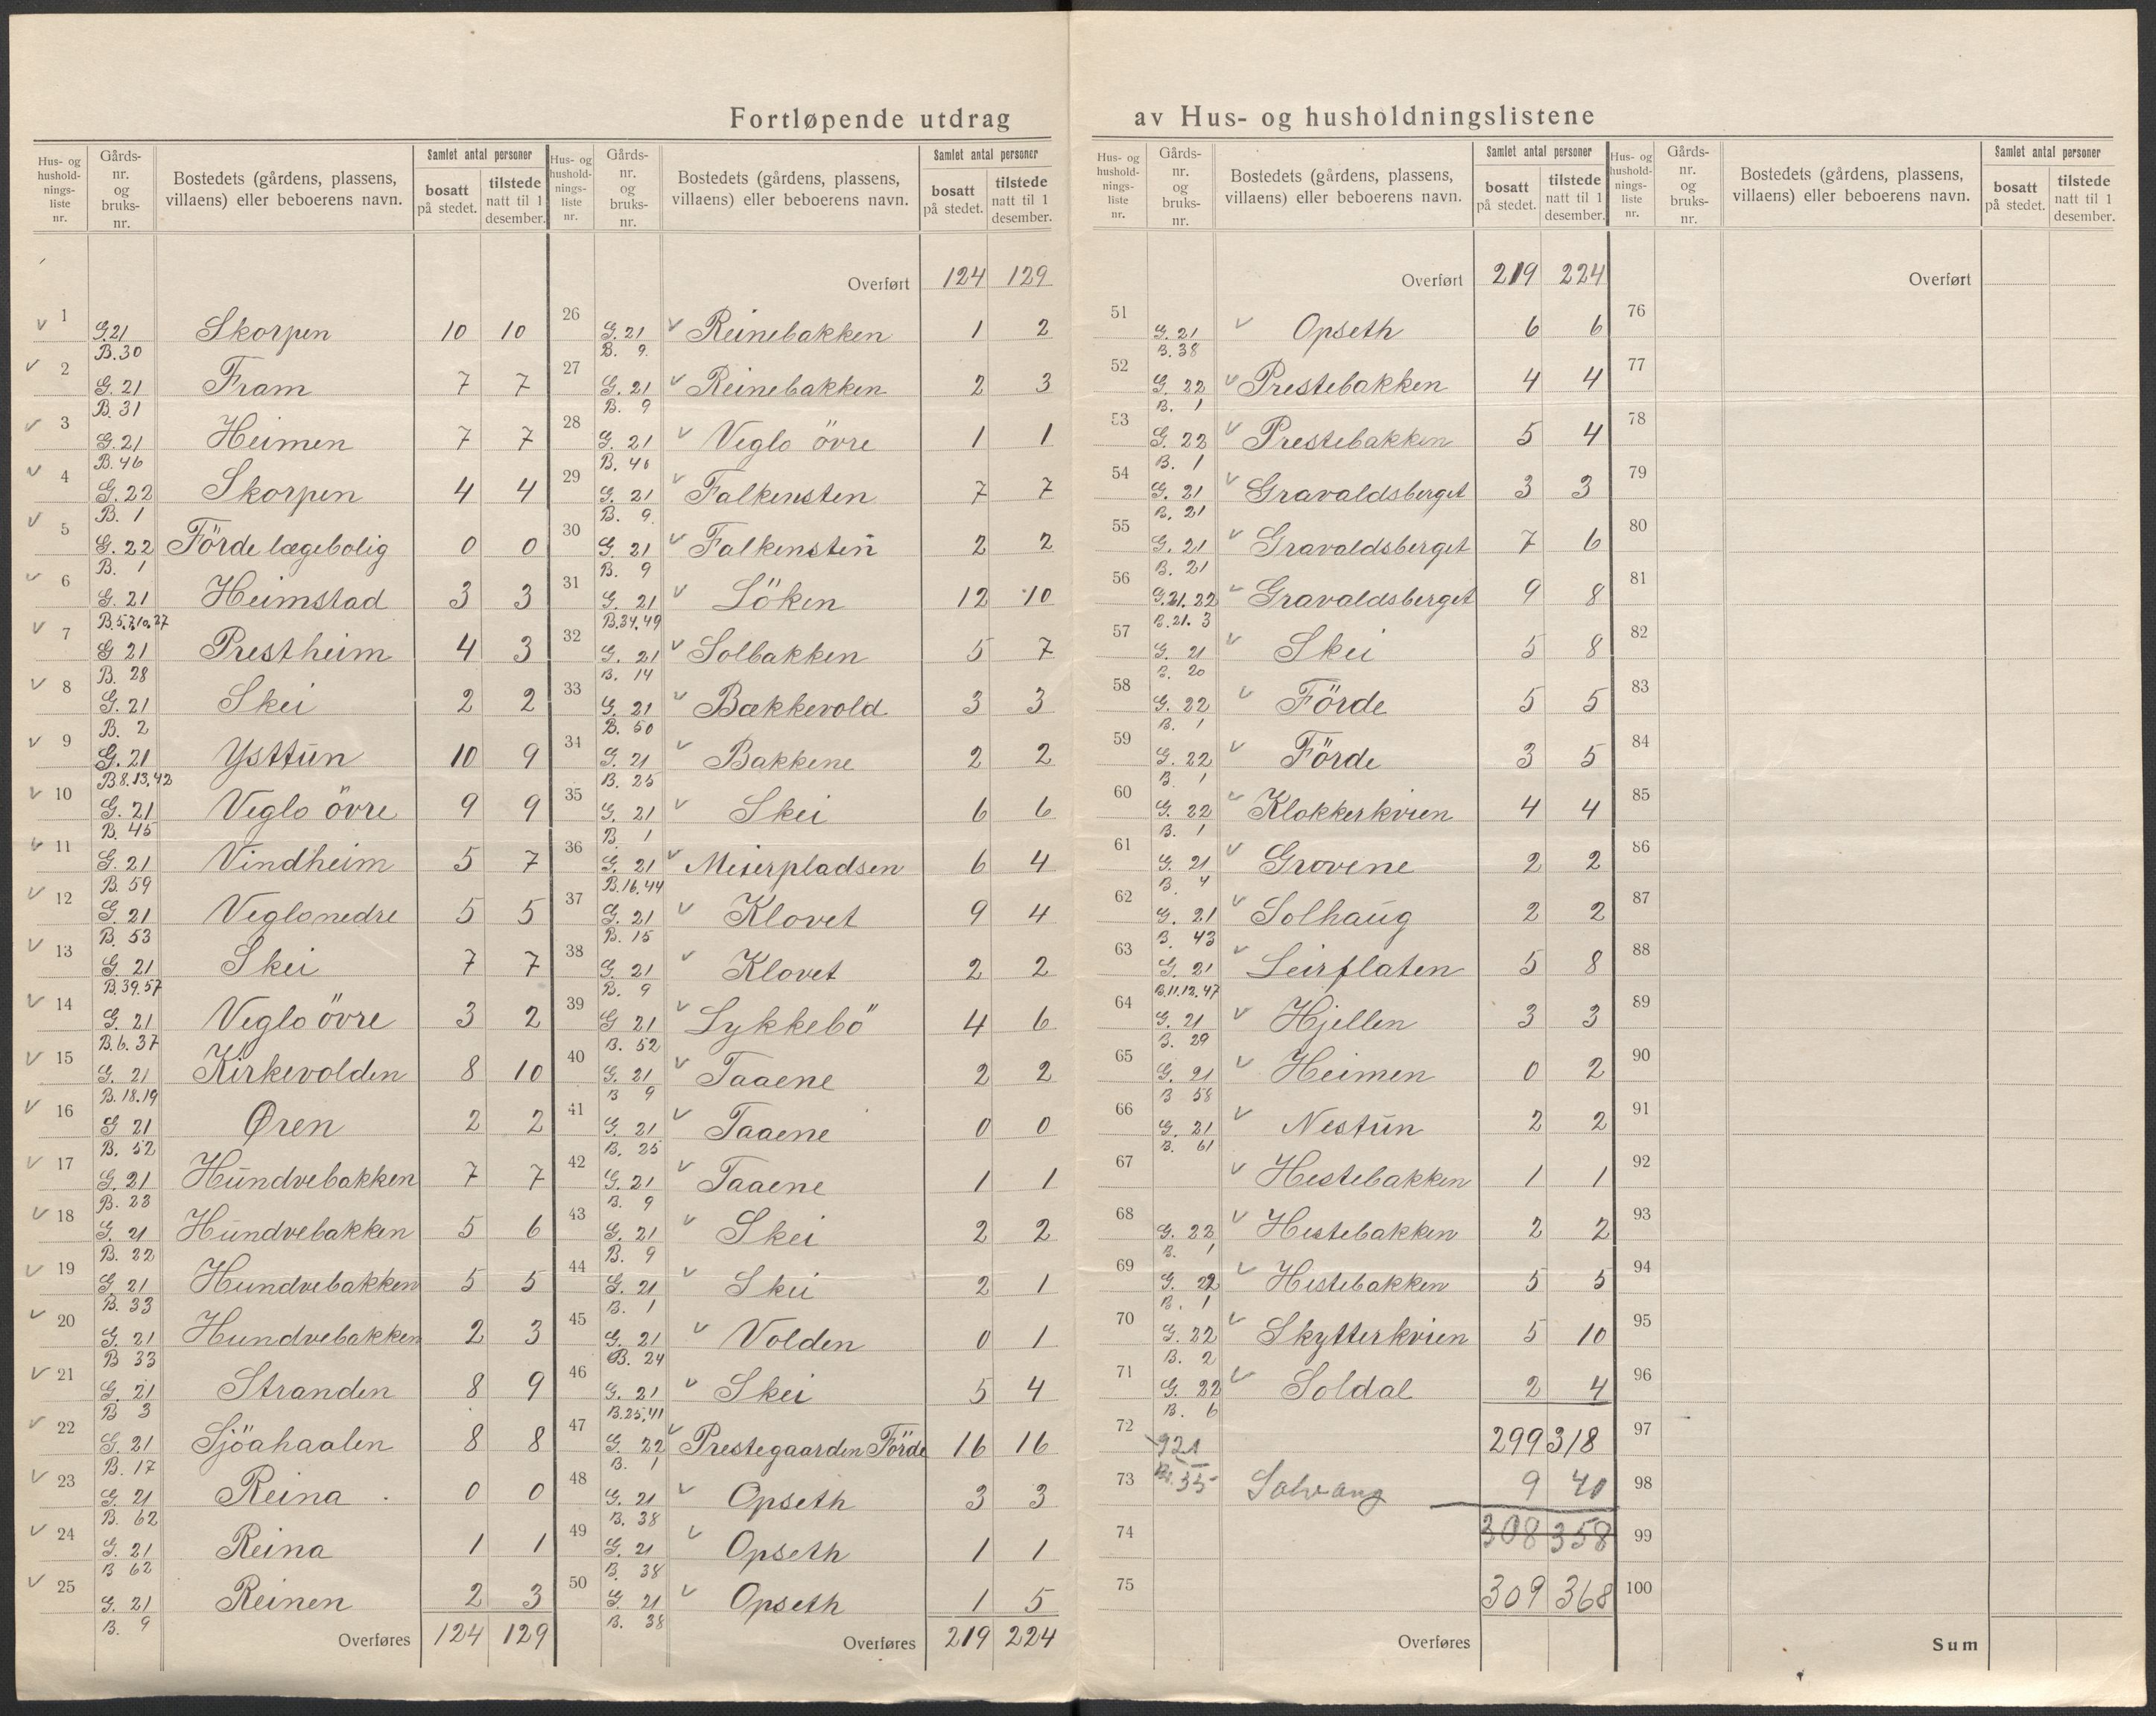 Fortløpende utdrag av Hus- og husholdningslistene
Hus- og hushold-nings-liste nr. | Gårds-nr. og bruks-nr. | Bostedets (gårdens, plassens, villaens) eller beboerens navn. | Samlet antal personer | bosatt på stedet. | tilstede natt til 1 desember.
1 G.21 B.30 Skorpen 10 10
2 G.21 B.31 Fram 7 7
3 G.21 B.46 Heimen 7 7
4 G.22 B.1 Skorpen 4 4
5 G.22 B.1 Förde lægebolig 0 0
6 G.21 B.5,7,10,27 Heimstad 3 3
7 G 21 B.28 Prestheim 4 3
8 G.21 B.2 Skei 2 2
9 G.21 B.8.13,42 Ysttun 10 9
10 G.21 B.45 Veglo övre 9 9
11 G.21 B.59 Vindheim 5 7
12 G.21 B.53 Veglonedre 5 5
13 G.21 B.39.57 Skei 7 7
14 G.21 B.6.37 Veglo övre 3 2
15 G.21 B.18.19 Kirkevolden 8 10
16 G 21 B.52 Øren 2 2
17 G.21 B.23 Hundvebakken 7 7
18 G.21 B.22 Hundvebakken 5 6
19 G.21 B.33 Hundvebakken 5 5
20 G.21 B 33 Hundvebakken 2 3
21 G.21 B 3 Stranden 8 9
22 G.21 B.17 Sjöahaalen 8 8
23 G.21 B.62 Reina 0 0
24 G.21 B 62 Reina 1 1
25 G.21 B.9 Reinen 2 3
Overføres 124 129
Hus- og hushold-nings-liste nr. | Gårds-nr. og bruks-nr. | Bostedets (gårdens, plassens, villaens) eller beboerens navn. | Samlet antal personer | bosatt på stedet. | tilstede natt til 1 desember.
Overført 124 129
26 G.21 B.9. Reinebakken 1 2
27 G.21 B.9 Reinebakken 2 3
28 G.21 B.46 Veglo övre 1 1
29 G.21 B.9. Falkensten 7 7
30 G.21 B.9 Falkensten 2 2
31 G.21 B.34.49 Löken 12 10
32 G.21 B.14 Solbakken 5 7
33 G.21 B.50 Bækkevold 3 3
34 G.21 B.25 Bakkene 2 2
35 G.21 B.1 Skei 6 6
36 G.21 B.16.44 Meierpladsen 6 4
37 G.21 B.15 Klovet 9 4
38 G.21 B.9 Klovet 2 2
39 G 21 B.52 Lykkebö 4 6
40 G.21 B 9 Taaene 2 2
41 G.21 B.25 Taaene 0 0
42 G.21 B.9 Taaene 1 1
43 G.21 B.9 Skei 2 2
44 G.21 B.1 Skei 2 1
45 G.21 B.24 Volden 0 1
46 G.21 B.25,41 Skei 5 4
47 G.22 B.1 Prestegaarden Förde 16 16
48 G.21 B.38 Opseth 3 3
49 G.21 B.38 Opseth 1 1
50 G.21 B.38 Opseth 1 5
Overføres 219 224
Hus- og hushold-nings-liste nr. | Gårds-nr. og bruks-nr. | Bostedets (gårdens, plassens, villaens) eller beboerens navn. | Samlet antal personer | bosatt på stedet. | tilstede natt til 1 desember.
Overført 219 224
51 G.21 B.38 Opseth 6 6
52 G.22 B.1 Prestebakken 4 4
53 G.22 B.1 Prestebakken 5 4
54 G.21 B.21 Gravaldsberget 3 3
55 G.21 B.21 Gravaldsberget 7 6
56 G.21.22 B.21.3 Gravaldsberget 9 8
57 G.21 B.20 Skei 5 8
58 G.22 B.1 Förde 5 5
59 G.22 B 1 Förde 3 5
60 G.22 B.1 Klokkerkvien 4 4
61 G.21 B.4 Grovene 2 2
62 G.21 B.43 Solhaug 2 2
63 G.21 B.11.12.47 Leirflaten 5 8
64 G.21 B.29 Hjellen 3 3
65 G.21 B 58 Heimen 0 2
66 G.21 B.61 Nestun 2 2
67 Hestebakken 1 1
68 G.22 B.1 Hestebakken 2 2
69 G.22 B.1 Hestebakken 5 5
70 G.22 B.2 Skytterkvien 5 10
71 G.22 B.6 Soldal 2 4
72 299 318
73 G21 Br.35 Solvang 9 40
74 308 358
75 309 368
Overføres
Hus- og hushold-nings-liste nr. | Gårds-nr. og bruks-nr. | Bostedets (gårdens, plassens, villaens) eller beboerens navn. | Samlet antal personer | bosatt på stedet. | tilstede natt til 1 desember.
Overført
76
77
78
79
80
81
82
83
84
85
86
87
88
89
90
91
92
93
94
95
96
97
98
99
100
Sum